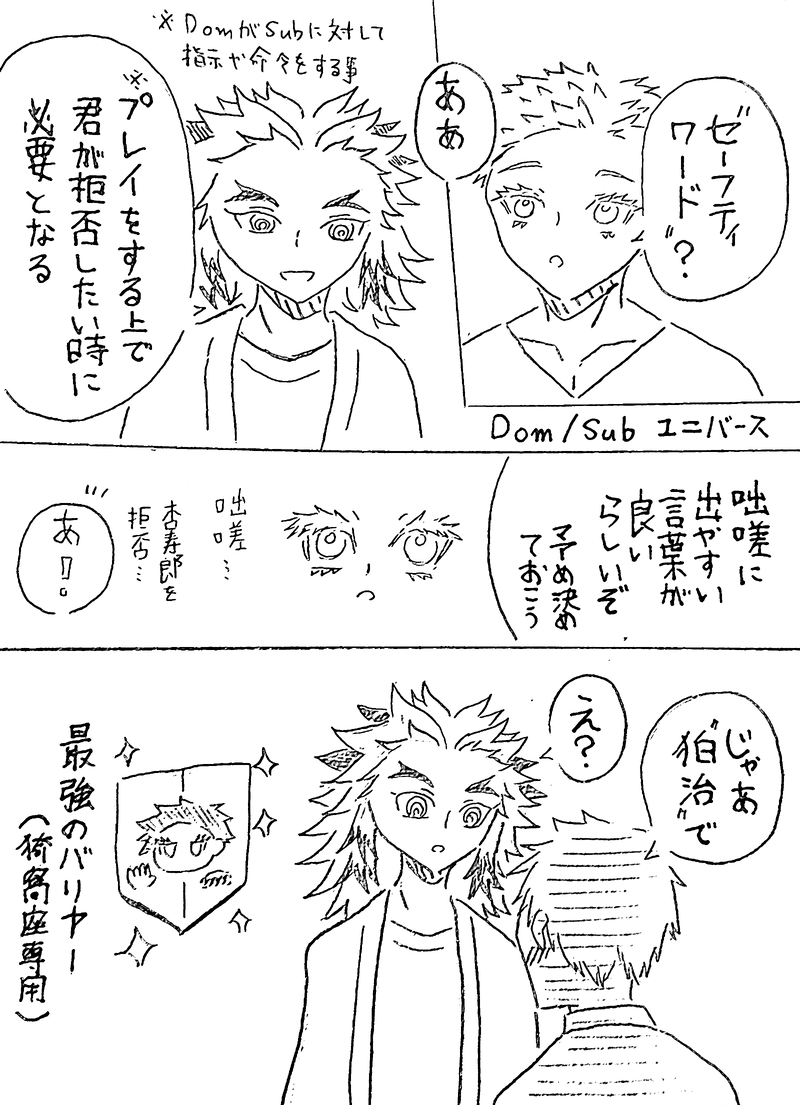 Dom/Sub ユニバース
"ゼーフティ
ワード"?
ああ
※DomがSubに対して
指示や命令をする事
※プレイをする上で
君が拒否したい時に
必要となる
咄嗟に
出やすい
言葉が
良い
らしいぞ
予め決め
ておこう
咄嗟…
杏寿郎を
拒否…
あ!。
じゃあ
"狛治"で
え?
最強のバリヤー
(猗窩座専用)